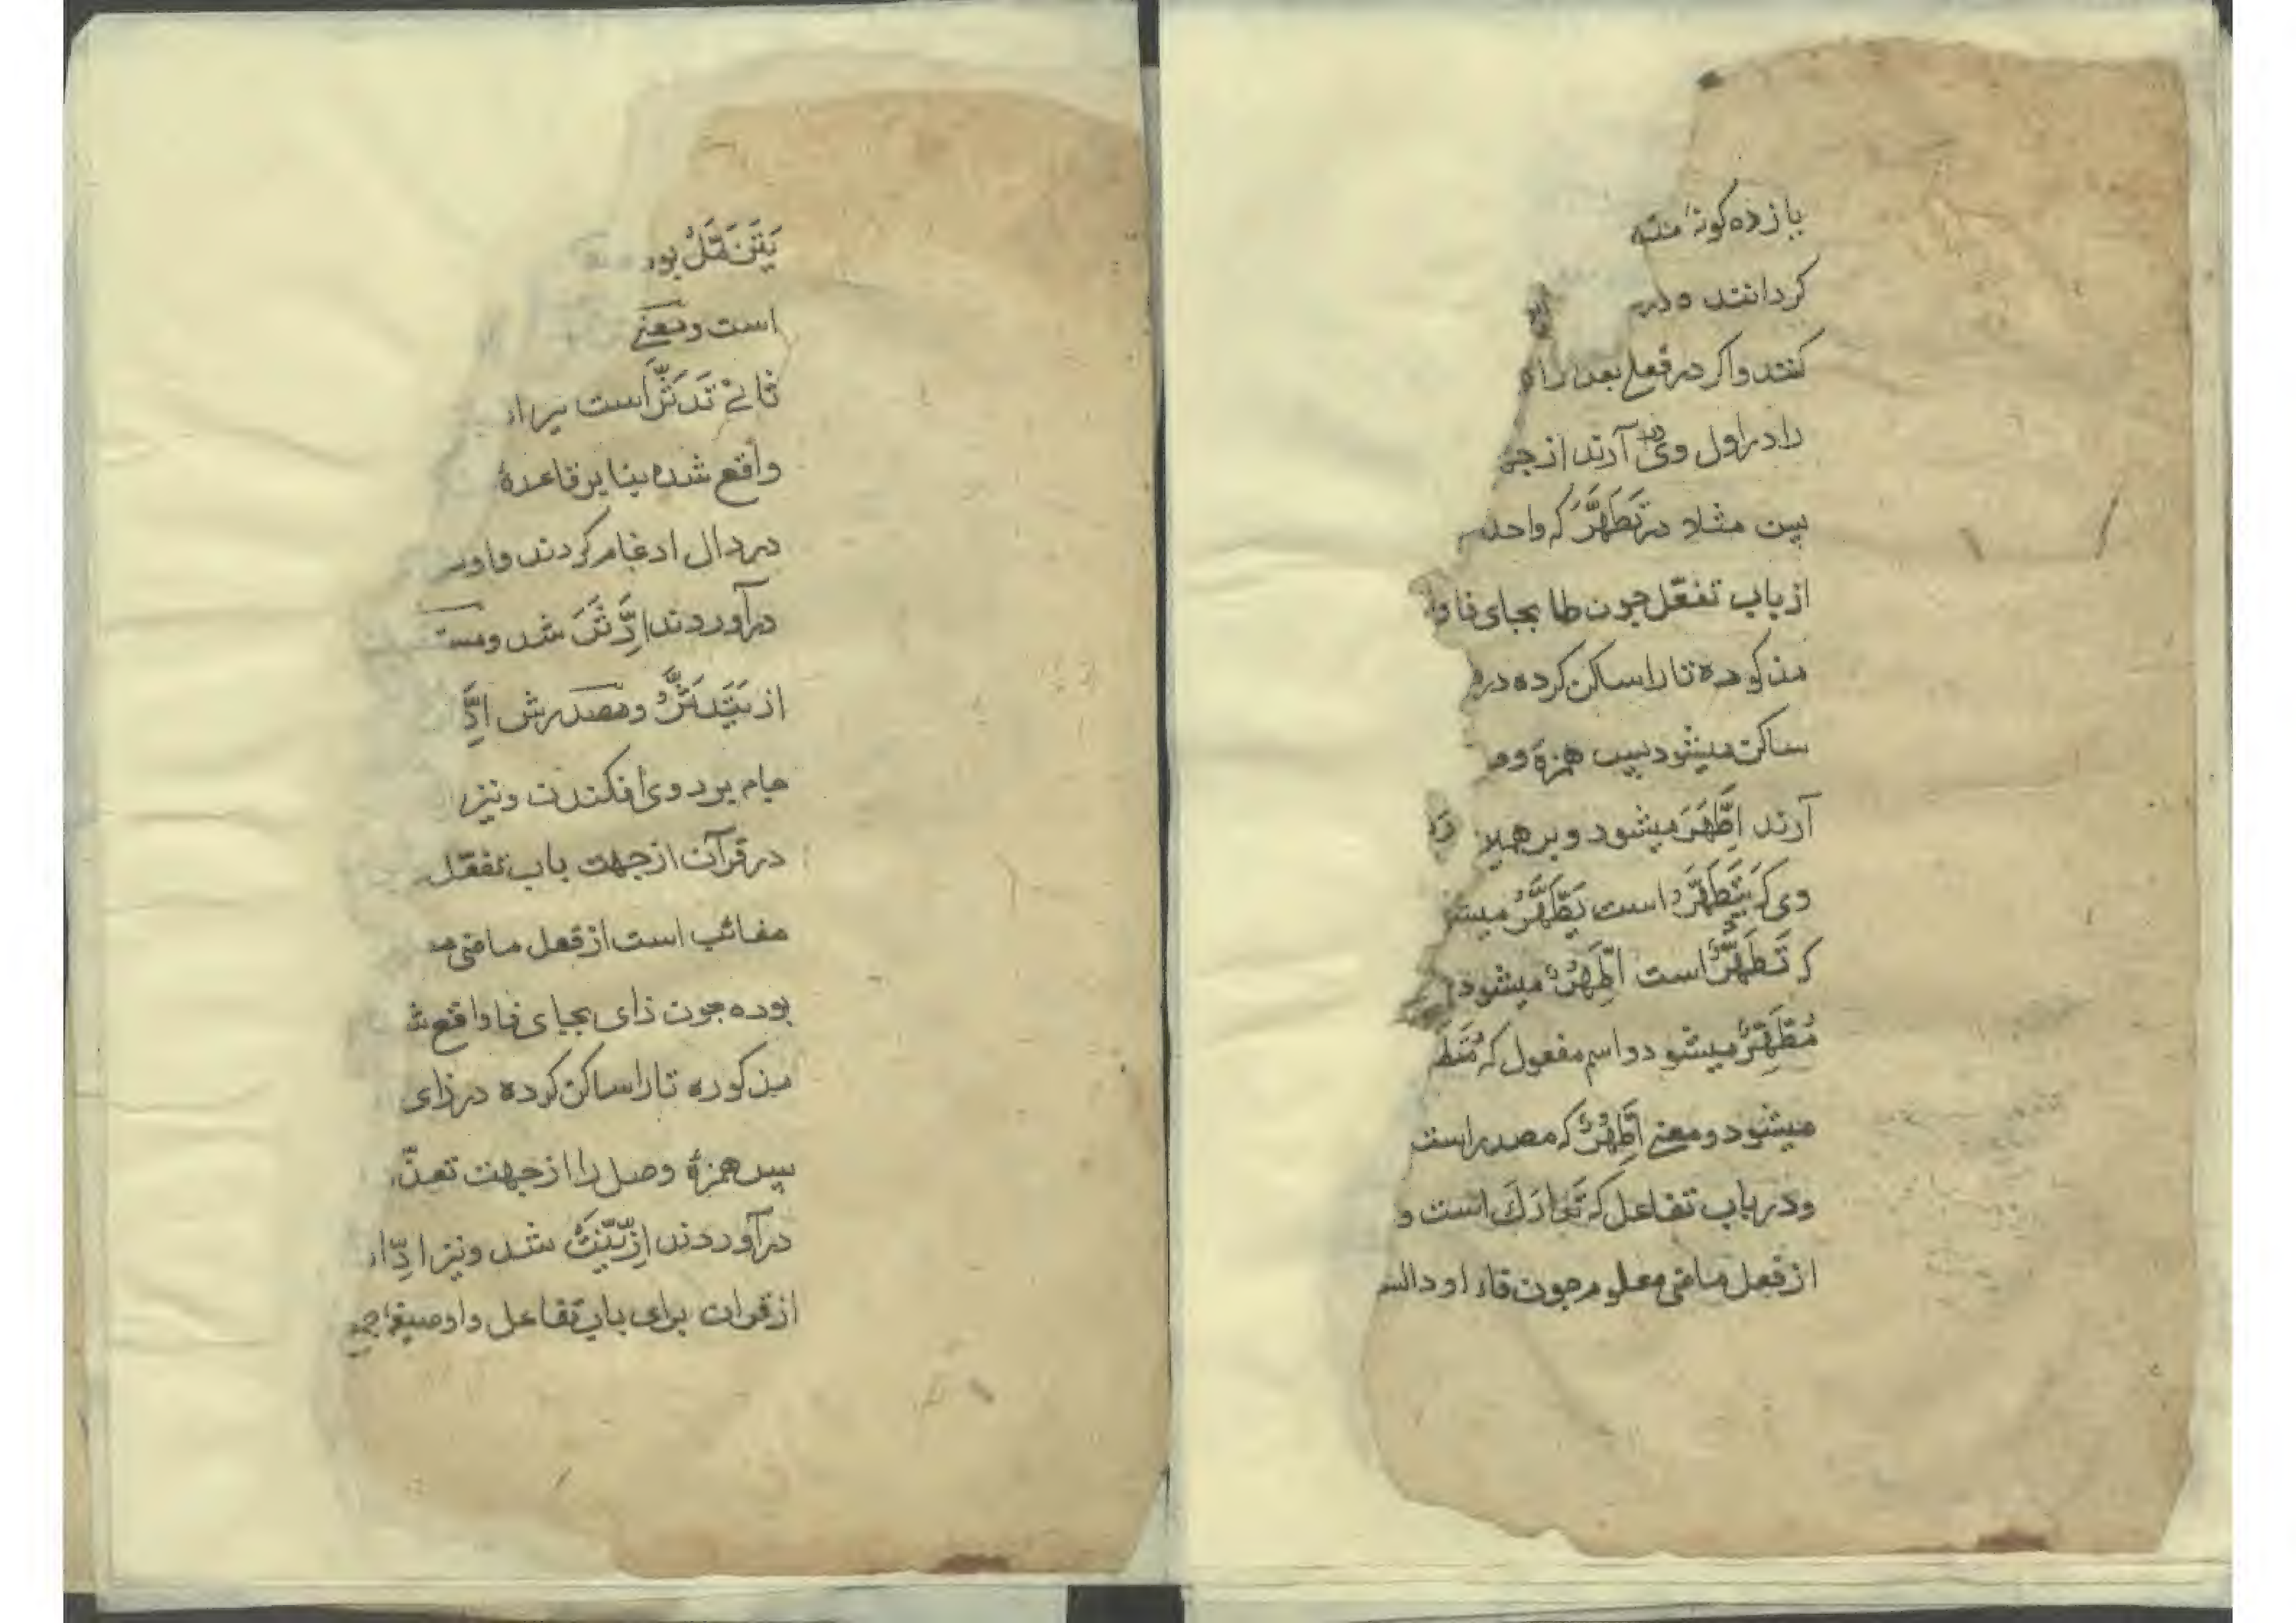 یازده کونه
کردانند و در
کنند و اکر در فعلی بعد از
را در اول وی در آرند از جهـ
بین مثلا در تَطَهَّرَ که واحد
از باب تفعّل چون طا بجای فا وا
مذکوره تا را ساکن کرده در
ساکن میشود سپس همزهٔ و
آرند اِطَّهَّرَ میشود و بر همین
وی که یَتَطَهَّرُ است یَطَّهَّرُ میشو
که تَطَهُّرٌ است اِطَّهُّرٌ میشود
مُطَّهِّرٌ میشود و اسم مفعول که مُتَطَ
میشود و معنی اِطَّهُّرٌ که مصدر است
و در باب تفاعل که تَدَارَكَ است و
از فعل ماضی معلوم چون فاء او دال
یَتَزَمَّلُ بود
است و معنی
ثانی تَدَثَّرَ است
واقع شده بنا بر قاعدهٔ
در دال ادغام کردند و او
در آوردند اِدَّثَّرَ شد و
از یَتَدَثَّرُ و مصدرش اِدَّ
جامه بر روی افکندن و نیز
در قرآن از جهت باب تفعّل
مغائب است از فعل ماضی
بوده چون زای بجای فا واقع
مذکوره تا را ساکن کرده در زای
سپس همزهٔ وصل را از جهت تعذّ
در آوردند اِزَّیَّنَتْ شد و نیز اِدّا
از قرآن برای باب تفاعل و او صیغهٔ